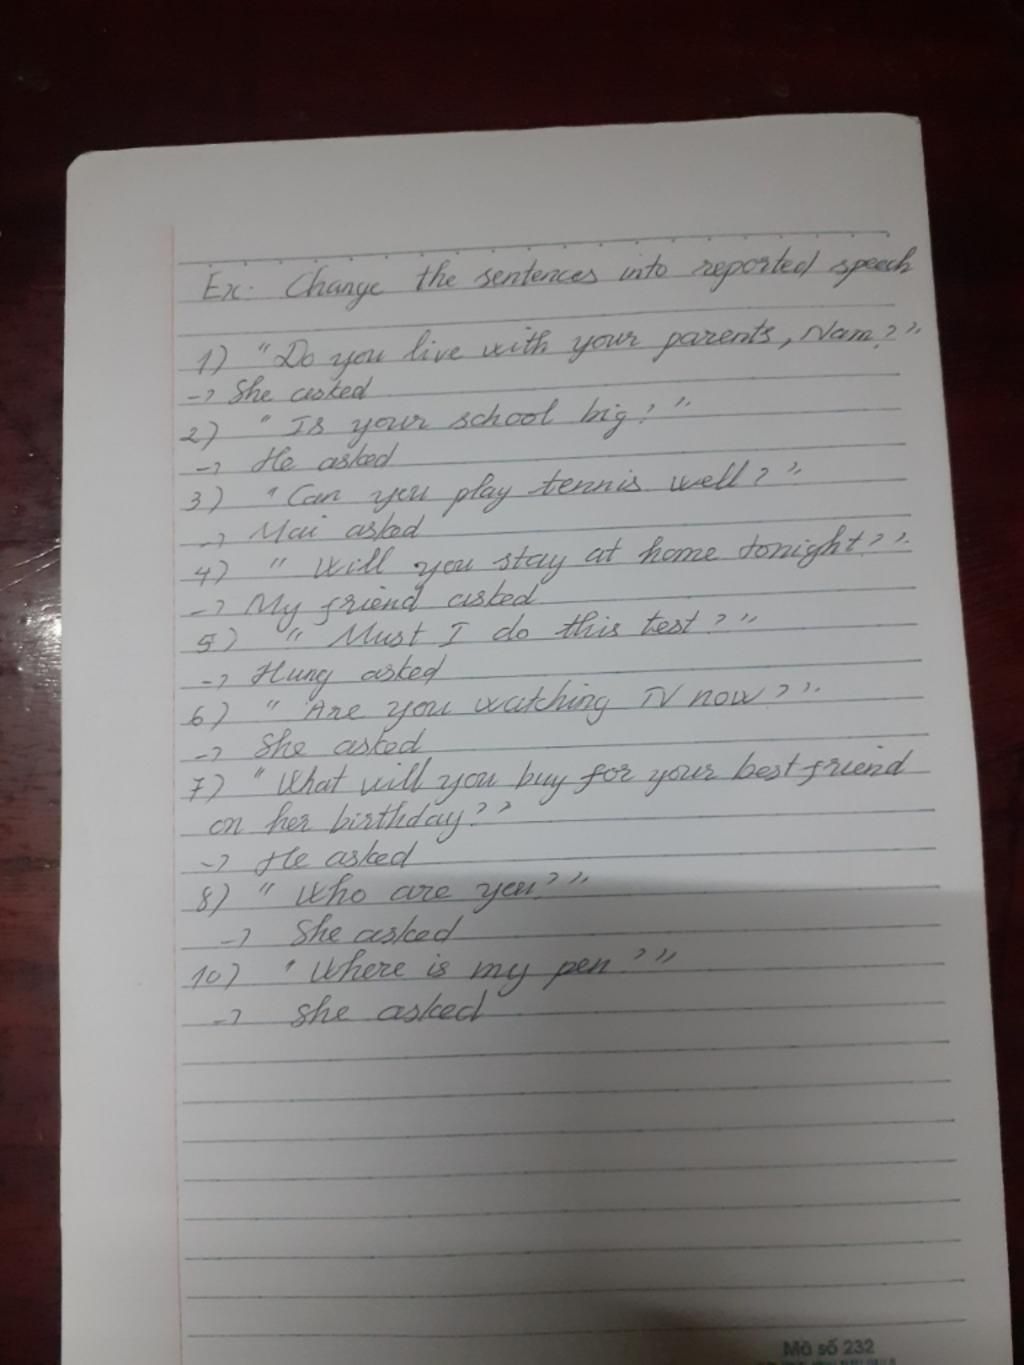 Ex: Change the sentences into reported speech
1) "Do you live with your parents, Nam?"
-> She asked
2) "Is your school big?"
-> He asked
3) "Can you play tennis well?"
-> Mai asked
4) "Will you stay at home tonight?"
-> My friend asked
5) "Must I do this test?"
-> Hung asked
6) "Are you watching TV now?"
-> She asked
7) "What will you buy for your best friend
on her birthday?"
-> He asked
8) "Who are you?"
-> She asked
10) "Where is my pen?"
-> She asked
Mã số 232